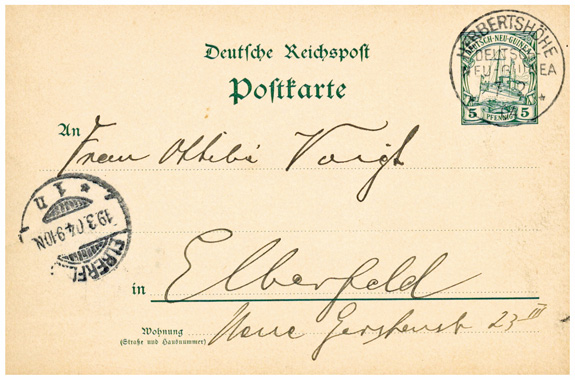 Deutsche Reichspost
Postkarte
DEUTSCH-NEU-GUINEA
5 PFENNIG 5
HERBERTSHÖHE
DEUTSCH
NEU-GUINEA
An Frau Ottilie Voigt
19.3.04.9-10N.
ELBERFE
1 n
in Elberfeld
Wohnung Neue Gerstenstr 23 III
(Straße und Hausnummer)